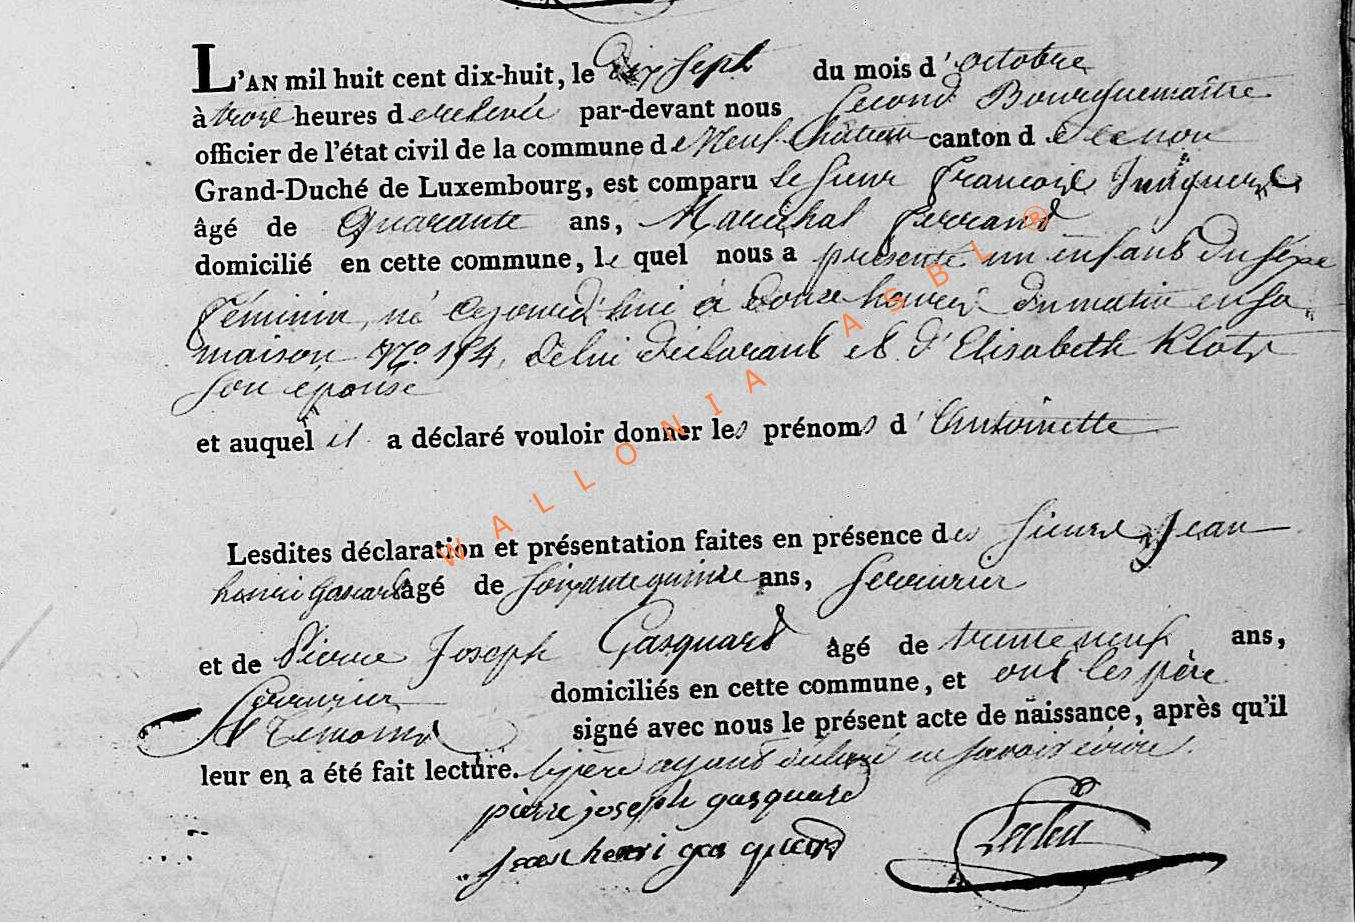 L'AN mil huit cent dix-huit, le dix Sept du mois d'octobre
à trois heures de relevée par-devant nous Second Bourguemaître
officier de l'état civil de la commune de Neufchateau canton d
Grand-Duché de Luxembourg, est comparu le Sieur François
âgé de Quarante ans, Marechal ferrand
domicilié en cette commune, le quel nous a présenté un enfant du sexe
féminin, né cejourd'hui à douze heures du matin en sa
maison N.o 154, de lui déclarant et d'Elisabeth Klotz
son épouse
et auquel il a déclaré vouloir donner les prénoms d'Antoinette
Lesdites déclaration et présentation faites en présence des Sieurs Jean
henri gascard âgé de soixante quinze ans, Serrurier
et de Pierre Joseph Gasquard âgé de trente neuf ans,
Serrurier domiciliés en cette commune, et ont les père
et Temoins signé avec nous le présent acte de naissance, après qu'il
leur en a été fait lecture. le père ayant déclaré ne savoir écrire.
pierre joseph gasquard
jean henri gasquard
WALLONIA ASBL ®